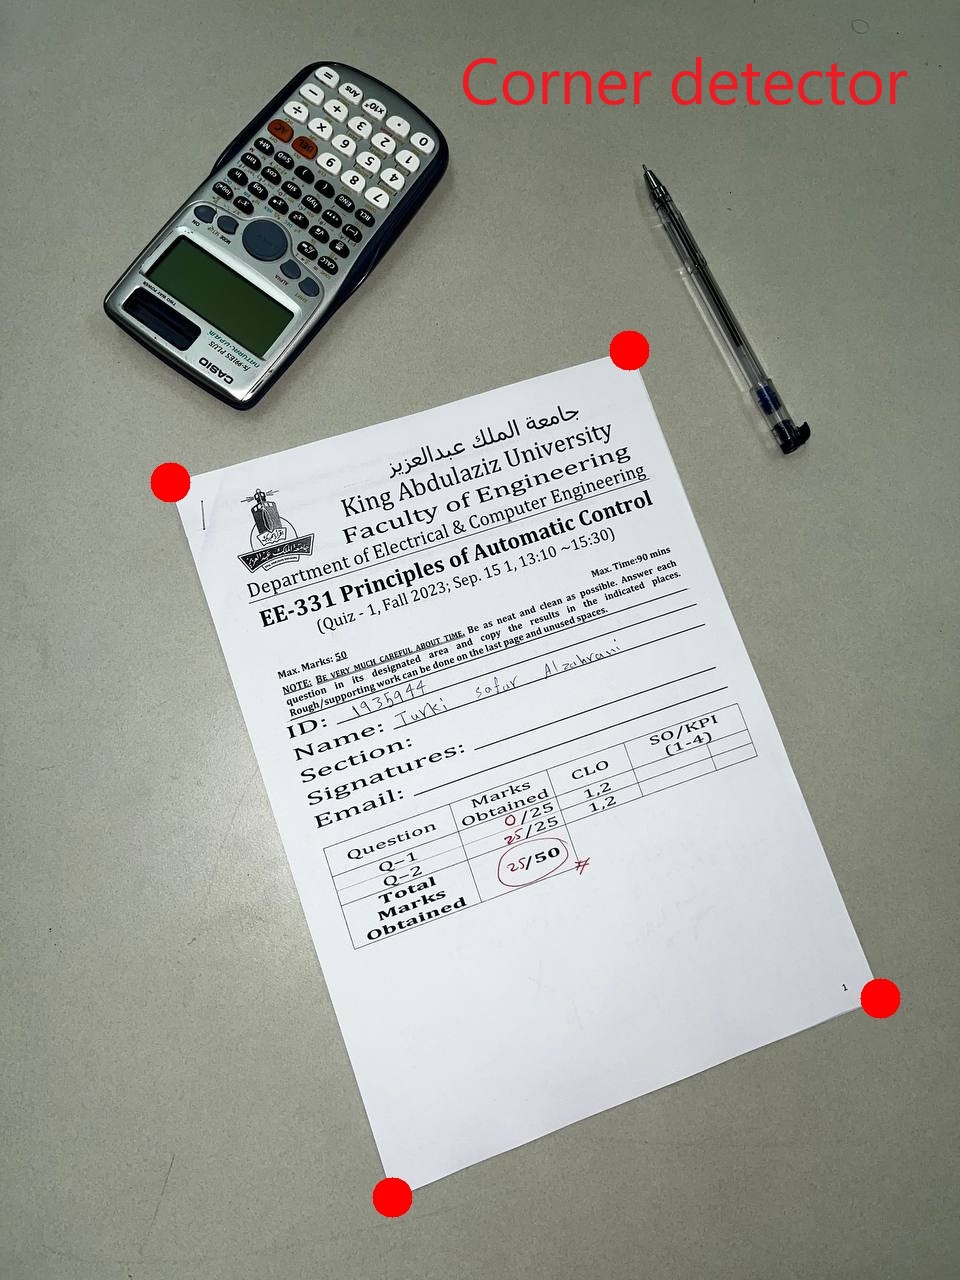 Corner detector
جامعة الملك عبدالعزيز
King Abdulaziz University
Faculty of Engineering
Department of Electrical & Computer Engineering
EE-331 Principles of Automatic Control
(Quiz - 1, Fall 2023; Sep. 15 1, 13:10 ~15:30)
Max. Marks: 50 Max. Time:90 mins
NOTE: BE VERY MUCH CAREFUL ABOUT TIME. Be as neat and clean as possible. Answer each
question in its designated area and copy the results in the indicated places.
Rough/supporting work can be done on the last page and unused spaces.
ID: 1935944
Name: Turki safar Alzahrani
Section:
Signatures:
Email:
Question Marks Obtained CLO SO/KPI (1-4)
Q-1 0/25 1,2
Q-2 25/25 1,2
Total Marks Obtained 25/50
1
CASIO
fx-991ES PLUS
NATURAL-V.P.A.M.
TWO WAY POWER
SHIFT ALPHA MODE SETUP ON
CALC
hyp sin cos tan
RCL ENG ( ) S⇔D M+
7 8 9 DEL AC
4 5 6 × ÷
1 2 3 + −
0 . ×10ˣ Ans =